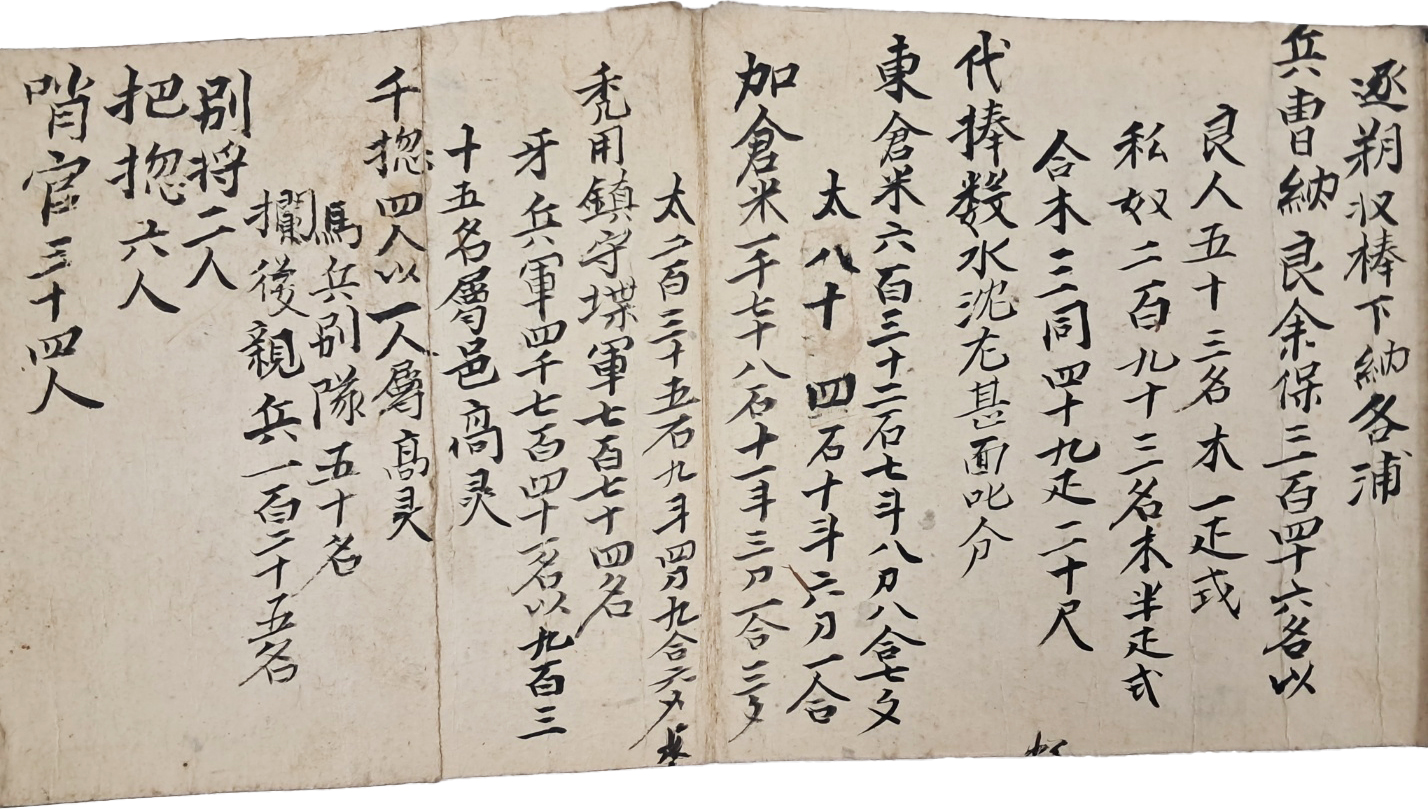 逐朔収棒下納各浦
兵曺納良余保三百四十六名以
良人五十三名木一疋式
私奴二百九十三名木半疋式
合木三同四十九疋二十尺
代捧数水沈尤甚面叱分
東倉米六百三十二石七斗八刀八合七夕
太八十四石十斗六刀一合
加倉米一千七十八石十一斗三刀一合三夕
太二百三十五石九斗四刀九合六夕
禿用鎮守堞軍七百七十四名
牙兵軍四千七百四十一名以九百三
十五名屬邑高灵
千揔四人以一人屬高灵
馬兵別隊五十名
攔後親兵一百二十五名
別将二人
把揔六人
哨官三十四人